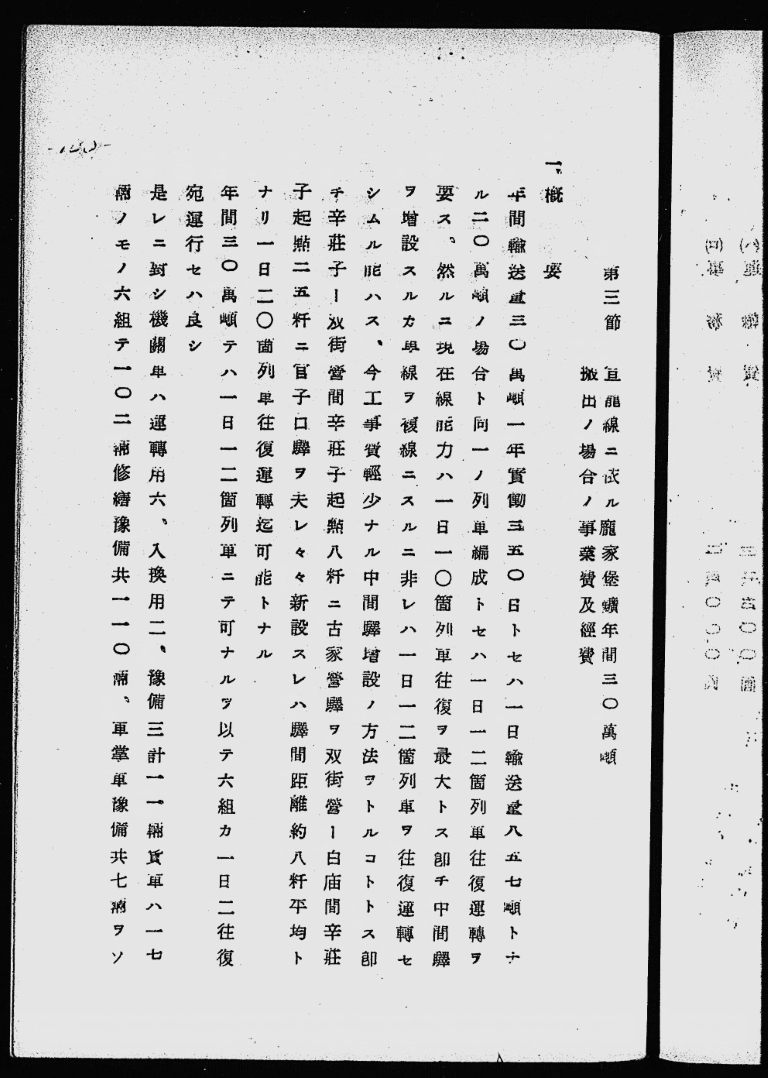 第三節 宣龍線ニ依ル龐家堡礦年間三〇萬噸
搬出ノ場合ノ事業費及經費
一、概要
年間輸送量三〇萬噸一年實働三五〇日トセハ一日輸送量八五七噸トナ
ル二〇萬噸ノ場合ト同一ノ列車編成トセハ一日一二箇列車往復運轉ヲ
要ス、然ルニ現在線能力ハ一日一〇箇列車往復ヲ最大トス卽チ中間驛
ヲ增設スルカ單線ヲ複線ニスルニ非レハ一日一二箇列車ヲ往復運轉セ
シムル能ハス、今工事費輕少ナル中間驛增設ノ方法ヲトルコトトス卽
チ辛莊子ー双街營間辛莊子起點八粁ニ古家營驛ヲ双街營ー白庙間辛莊
子起點二五粁ニ官子口驛ヲ夫レ々々新設スレハ驛間距離約八粁平均ト
ナリ一日二〇箇列車往復運轉迄可能トナル
年間三〇萬噸テハ一日一二箇列車ニテ可ナルヲ以テ六組カ一日二往復
宛運行セハ良シ
是レニ對シ機關車ハ運轉用六、入換用二、豫備三計一一輛貨車ハ一七
輛ノモノ六組テ一〇二輛修繕豫備共一一〇輛、車掌車豫備共七輛ヲソ